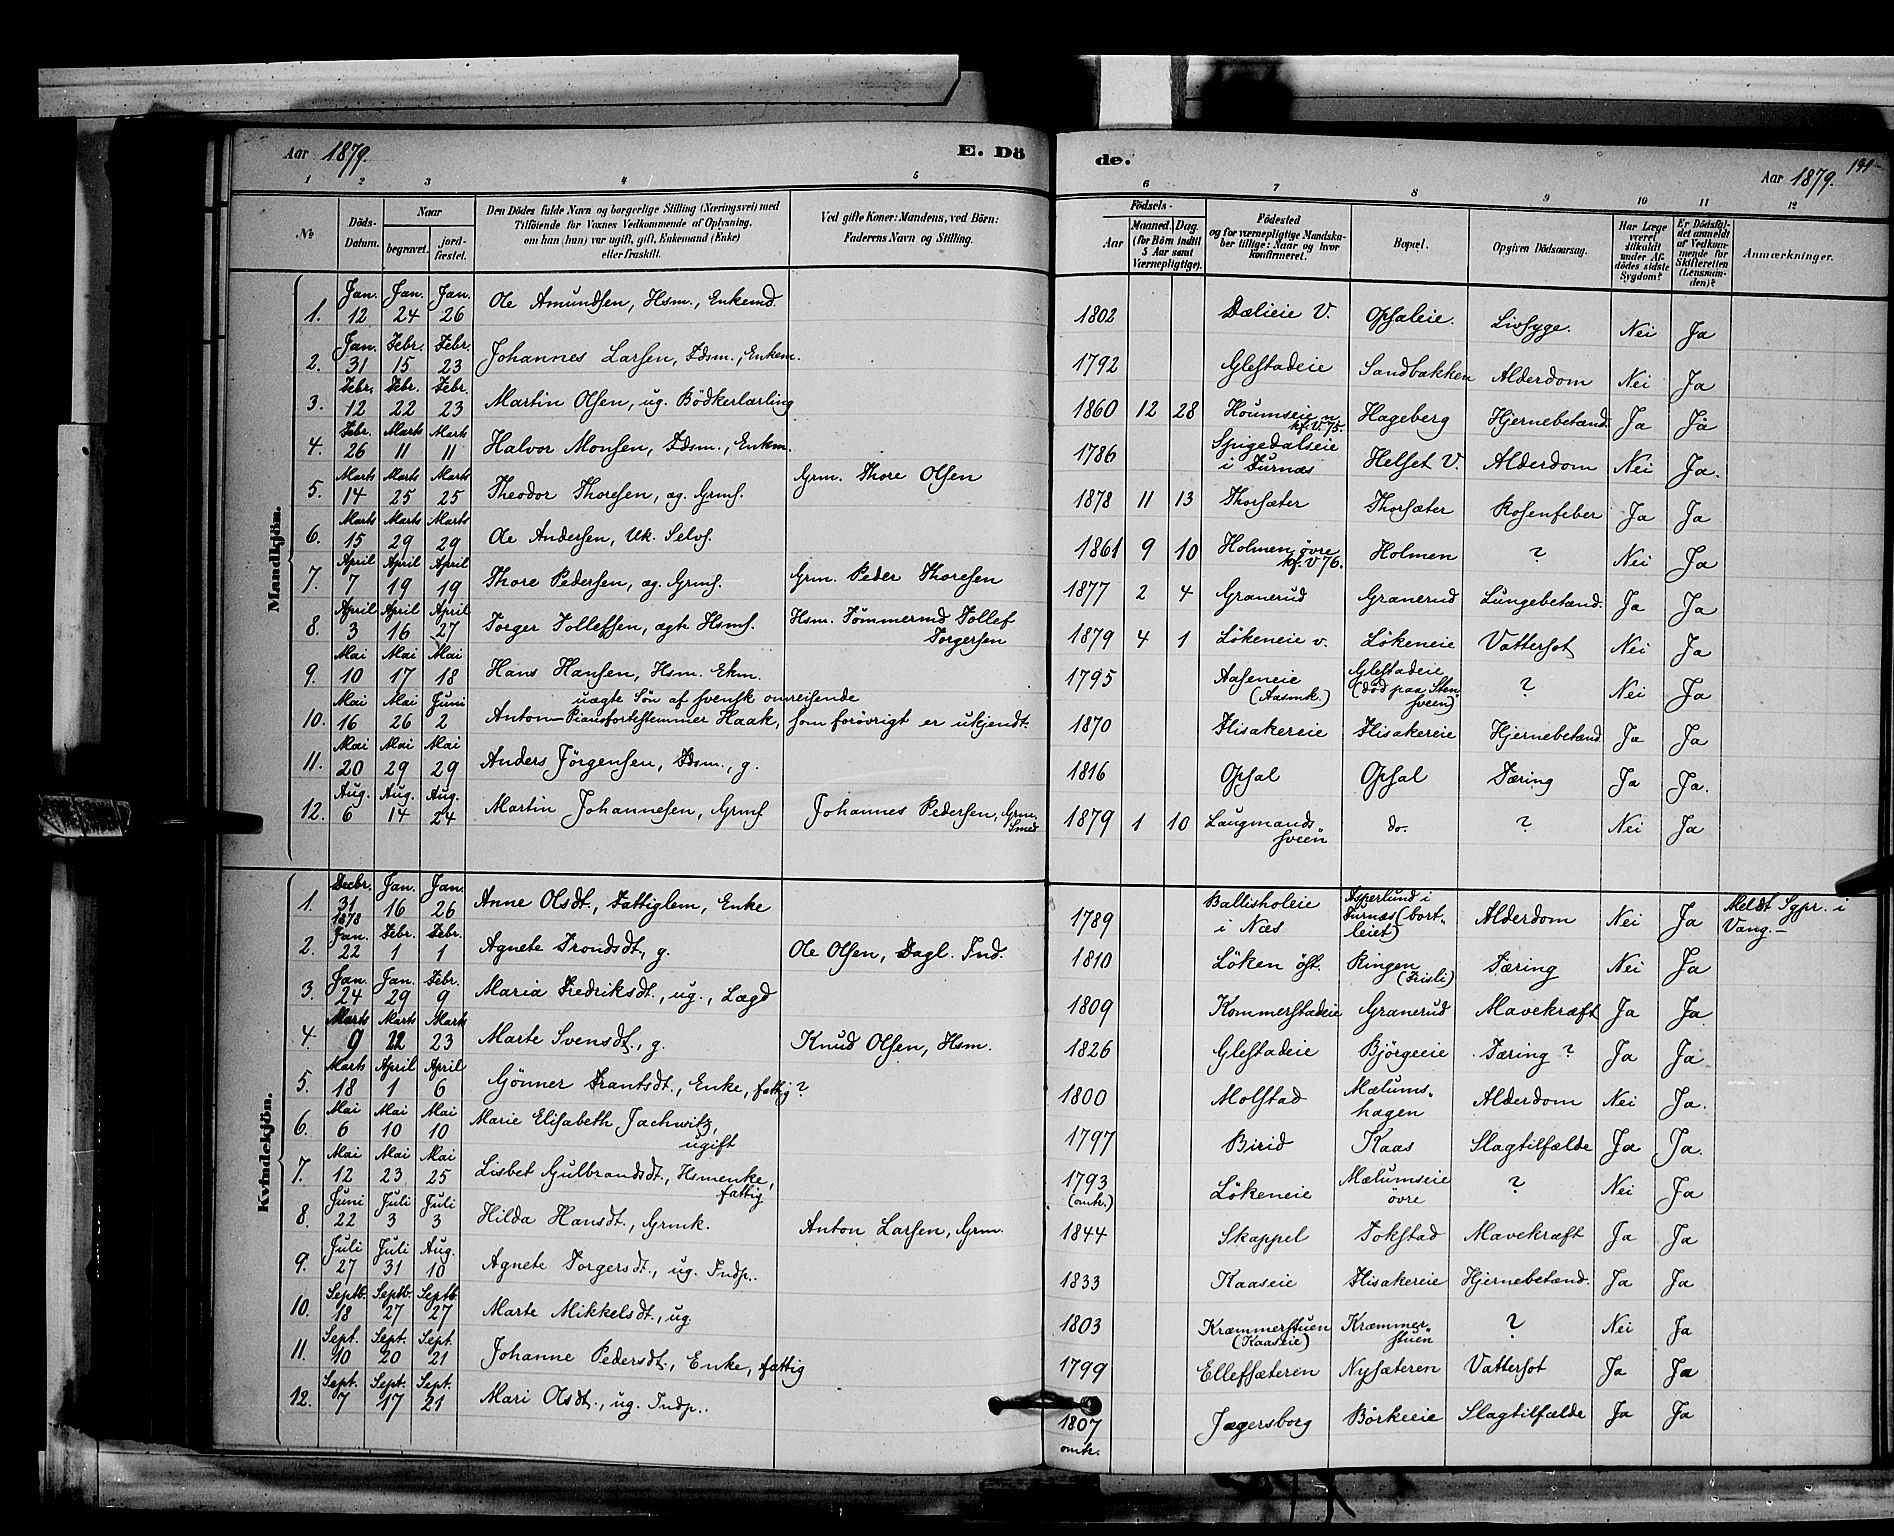 Aar 1879. E. Dö de. Aar 1879. 191-
1 2 3 4 5 6 7 8 9 10 11 12
No. Döds-Datum. Naar begravet. jord-fæstet. Den Dödes fulde Navn og borgerlige Stilling (Næringsvei) med Tilföiende for Voxnes Vedkommende af Oplysning, om han (hun) var ugift, gift, Enkemand (Enke) eller fraskilt. Ved gifte Koner: Mandens, ved Börn: Faderens Navn og Stilling. Födsels- Aar Maaned. Dag. (for Börn indtil 5 Aar samt Værnepligtige). Födested og for værnepligtige Mandskaber tillige: Naar og hvor konfirmeret. Bopæl. Opgiven Dödsaarsag. Har Læge været tilkaldt under Afdödes sidste Sygdom? Er Dödsfaldet anmeldt af Vedkommende for Skifteretten (Lensmanden)? Anmærkninger.
Mandkjön.
1. Jan. 12 Jan. 24 Jan. 26 Ole Amundsen, Hsm., Enkemd. 1802 Dælieie V. Opsaleie. Livsyge. Nei Ja
2. Jan. 31 Febr. 15 Febr. 23 Johannes Larsen, Fdsm., Enkem. 1792 Glestadeie Sandbakken Alderdom Nei Ja
3. Febr. 12 Febr. 22 Febr. 23 Martin Olsen, ug. Bödkerlærling 1860 12 28 Houmseie n. kf. V 75. Hageberg Hjernebetænd. Ja Ja
4. Febr. 26 Marts 11 Marts 11 Halvor Monsen, Fdsm., Enkm. 1786 Spigedalseie i Furnæs Helset V. Alderdom Nei Ja.
5. Marts 14 Marts 25 Marts 25 Theodor Thoresen, æg. Grms. Grm. Thore Olsen 1878 11 13 Thorsæter Thorsæter Rosenfeber Ja Ja
6. Marts 15 Marts 29 Marts 29 Ole Andersen, Uk. Selvs. 1861 9 10 Holmen, övre kf. V 76. Holmen ? Nei Ja
7. April 7 April 19 April 19 Thore Pedersen, æg. Grms. Grm. Peder Thoresen 1877 2 4 Granerud Granerud Lungebetænd. Ja Ja
8. April 3 April 16 April 27 Torger Tollefsen, ægte Hsms. Hsm. Tömmermd Tollef Torgersen 1879 4 1 Lökeneie v. Lökeneie Vattersot Nei Ja
9. Mai 10 Mai 17 Mai 18 Hans Hansen, Hsm. Ekm. 1795 Aaseneie (Aasmk.) Glestadeie (död paa Stensveen) ? Nei Ja
10. Mai 16 Mai 26 Juni 2 Anton – uægte Sön af svensk omreisende Pianofortestemmer Haak, som forövrigt er ukjendt. 1870 Flisakereie Flisakereie Hjernebetænd. Ja Ja
11. Mai 20 Mai 29 Mai 29 Anders Jörgensen, Fdsm., g. 1816 Opsal Opsal Tæring Ja Ja.
12. Aug. 6 Aug. 14 Aug. 24 Martin Johannesen, Grms. Johannes Pedersen, Grm. Smed 1879 1 10 Laugmandssveen do. ? Nei Ja
Kvindekjön.
1. Decbr. 31 1878 Jan. 16 Jan. 26 Anne Olsdt., Fattiglem, Enke 1789 Ballisholeie i Næs Asperlund i Furnæs (bortleiet) Alderdom Nei Ja Meldt Sgpr. i Vang.–
2. Jan. 22 Febr. 1 Febr. 1 Agnete Trondsdt., g. Ole Olsen, Dagl. Ind. 1810 Löken öst. Ringen (Frisli) Tæring Nei Ja
3. Jan. 24 Jan. 29 Febr. 9 Maria Fredriksdt., ug., Lægd 1809 Kommerstadeie Granerud Mavekræft Ja Ja
4. Marts 9 Marts 22 Marts 23 Marte Svensdt., g. Knud Olsen, Hsm. 1826 Glestadeie Björgeeie Tæring ? Ja Ja
5. Marts 18 April 1 April 6 Gönner Frantsdt., Enke, fattig ? 1800 Molstad Mælumshagen Alderdom Nei Ja.
6. Mai 6 Mai 10 Mai 10 Marie Elisabeth Jachwitz, ugift 1797 Birid Kaas Slagtilfælde Ja Ja.
7. Mai 12 Mai 23 Mai 25 Lisbet Gulbrandsdt., Hsmenke, fattig 1793 (omtr.) Lökeneie Mælumseie övre ? Nei Ja
8. Juni 22 Juli 3 Juli 3 Hilda Hansdt., Grmk. Anton Larsen, Grm. 1844 Skappel Tokstad Mavekræft Ja Ja
9. Juli 27 Juli 31 Aug. 10 Agnete Torgersdt., ug. Indp. 1833 Kaaseie Flisakereie Hjernebetænd. Ja Ja
10. Septb. 18 Septb. 27 Septb. 27 Marte Mikkelsdt., ug. 1803 Kræmmerstuen (Kaaseie) Kræmmerstuen ? Nei Ja
11. Sept. 10 Sept. 20 Sept. 21 Johanne Pedersdt., Enke, fattig 1799 Ellefsæteren Nysæteren Vattersot Ja Ja
12. Sept. 7 Sept. 17 Sept. 21 Mari Olsdt., ug. Indp. 1807 omtr. Jægersborg Börkeeie Slagtilfælde Ja Ja